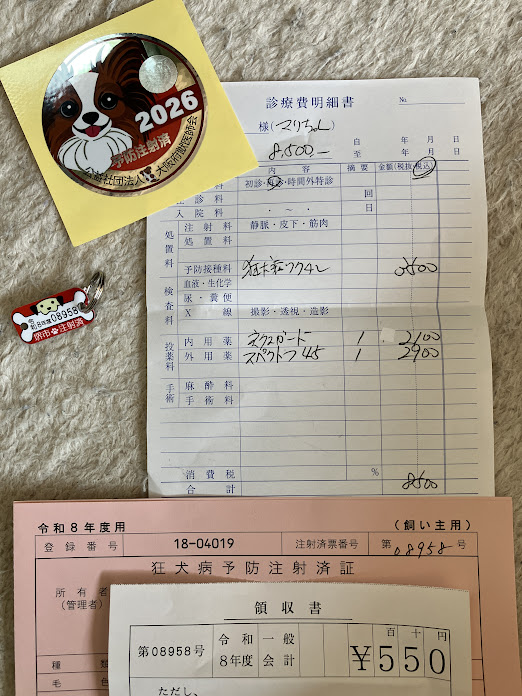 2026
予防注射済
公益社団法人 大阪府獣医師会
診療費明細書
No.
様(マリちゃん)
8,500.—
自 年 月 日
至 年 月 日
内容 摘要 金額(税抜・税込)
初診・再診・時間外特診
往診料 ・ ～ ・ 回
入院料 日
処置料
注射料 静脈・皮下・筋肉
処置料
予防接種料 狂犬病ワクチン 3500
検査料
血液・生化学
尿・糞便
X線 撮影・透視・造影
投薬料
内用薬 ネクスガード 1 2100
外用薬 スペクトラ 1 2900
手術
麻酔料
手術料
消費税 %
合計 8500
令8年度 08958
堺市 注射済
令和8年度用 (飼い主用)
登録番号 18-04019 注射済票番号 第08958号
狂犬病予防注射済証
所有者
(管理者)
種類
毛色
領収書
第08958号 令和8年度 一般会計 百十円 ¥550
ただし、